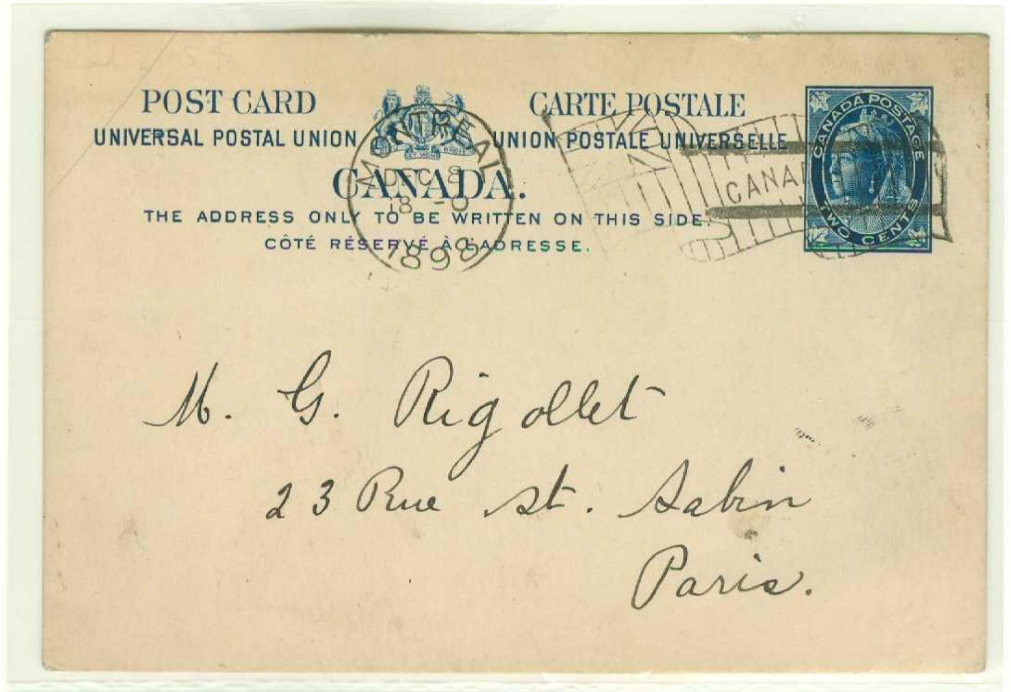 POST CARD
CARTE POSTALE
UNIVERSAL POSTAL UNION
UNION POSTALE UNIVERSELLE
CANADA.
THE ADDRESS ONLY TO BE WRITTEN ON THIS SIDE.
CÔTÉ RÉSERVÉ À L'ADRESSE.
MONTREAL
DEC 8
18-0
1898
CANA
CANADA POSTAGE
TWO CENTS
M. G. Rigollet
23 Rue St. Sabin
Paris.